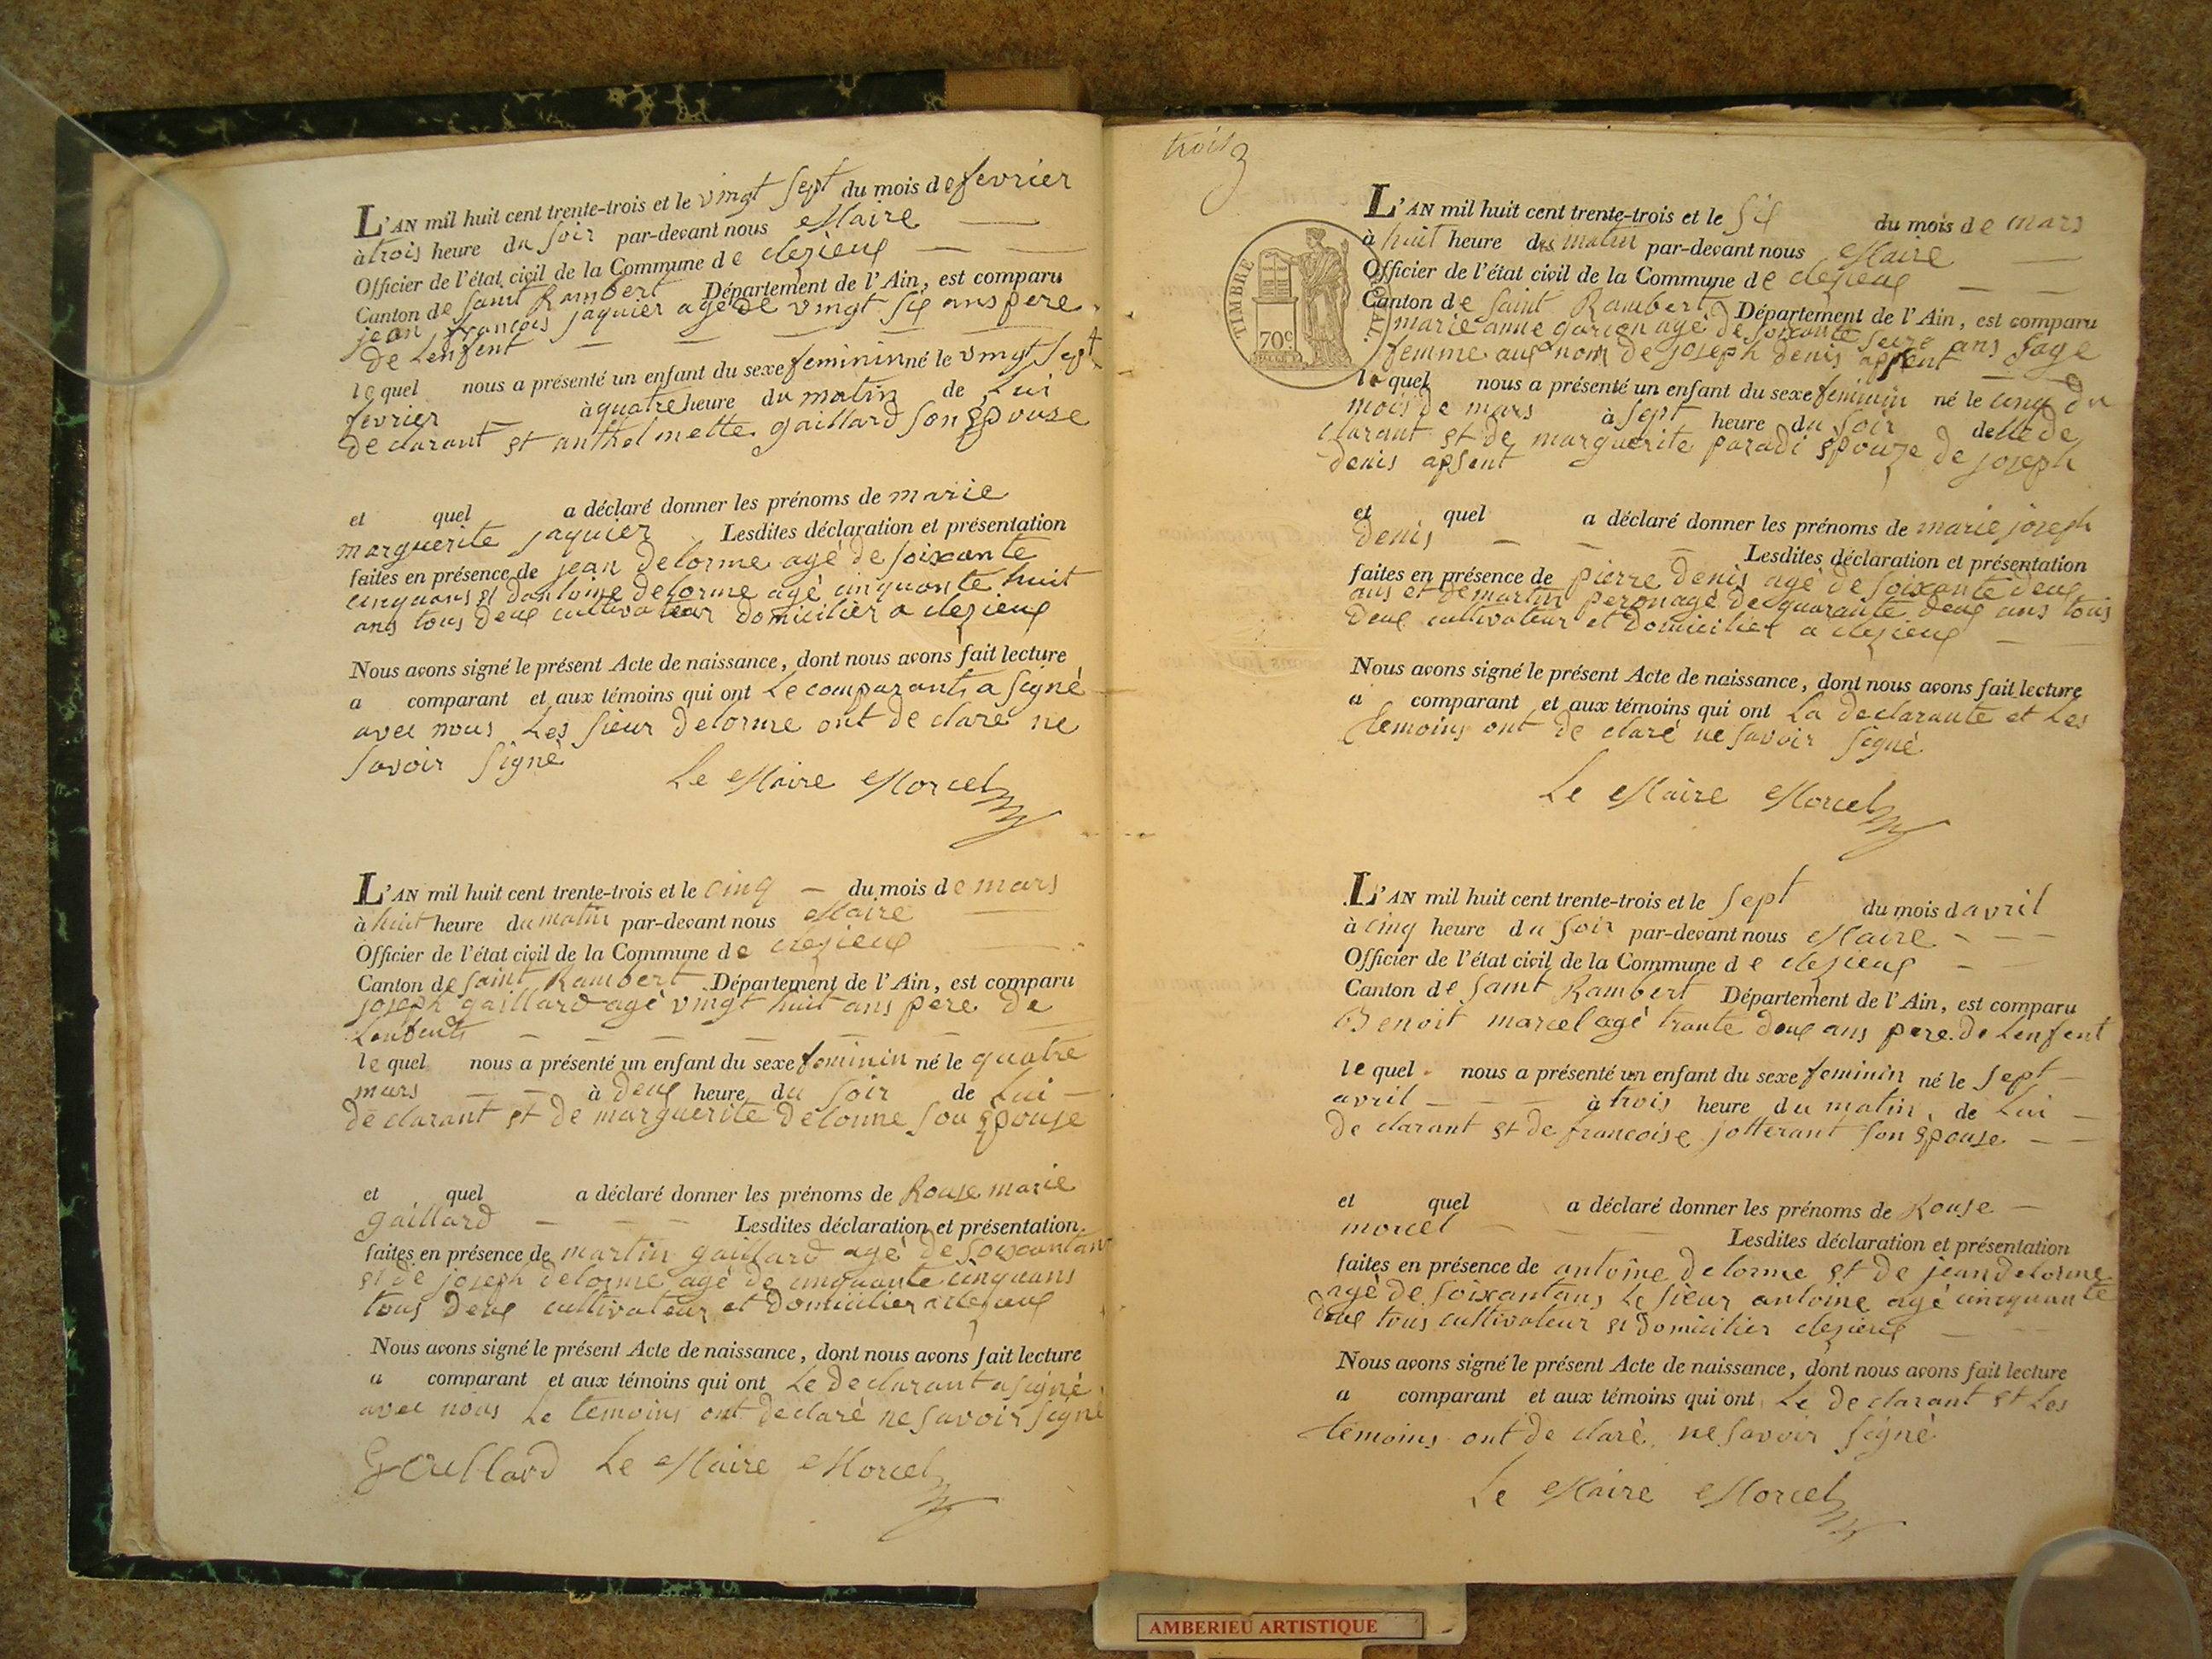 L'AN mil huit cent trente-trois et le vingt sept du mois de fevrier
à trois heure du soir par-devant nous Maire
Officier de l'état civil de la Commune de clezieux
Canton de saint Rambert Département de l'Ain, est comparu
jean françois jaquier agé de vingt six ans pere
de Lenfent
le quel nous a présenté un enfant du sexe feminin né le vingt sept
fevrier à quatre heure du matin de Lui
declarant et anthelmette gaillard son epouse
et quel a déclaré donner les prénoms de marie
marguerite jaquier Lesdites déclaration et présentation
faites en présence de jean delorme agé de soixante
cinquans et dantoine delorme agé cinquante huit
ans tous deux cultivateur domicilier a clezieux
Nous avons signé le présent Acte de naissance, dont nous avons fait lecture
a comparant et aux témoins qui ont Le comparant a signé
avec nous Les sieur delorme ont de claré ne
savoir signé
Le Maire Morcel
L'AN mil huit cent trente-trois et le cinq du mois de mars
à huit heure du matin par-devant nous Maire
Officier de l'état civil de la Commune de clezieux
Canton de saint Rambert Département de l'Ain, est comparu
joseph gaillard agé vingt huit ans pere de
Lenfent
le quel nous a présenté un enfant du sexe feminin né le quatre
mars à deux heure du soir de Lui
declarant et de marguerite delorme son epouse
et quel a déclaré donner les prénoms de Rouse marie
gaillard Lesdites déclaration et présentation
faites en présence de martin gaillard agé de soixantans
et de joseph delorme agé de cinquante cinquans
tous deux cultivateur et domicilier a clezieux
Nous avons signé le présent Acte de naissance, dont nous avons fait lecture
a comparant et aux témoins qui ont Le declarant a signé
avec nous Le temoins ont declaré ne savoir signé
Gaillard Le Maire Morcel
trois 3
TIMBRE ROYAL.
70c
L'AN mil huit cent trente-trois et le six du mois de mars
à huit heure du matin par-devant nous Maire
Officier de l'état civil de la Commune de clezieux
Canton de saint Rambert Département de l'Ain, est comparu
marie anne agé de soixante ans sage
femme aux nom de joseph denis apsent
le quel nous a présenté un enfant du sexe feminin né le cinq du
mois de mars à sept heure du soir delle de
clarant et de marguerite paradi epouze de joseph
denis apsent
et quel a déclaré donner les prénoms de marie joseph
denis Lesdites déclaration et présentation
faites en présence de pierre denis agé de soixante deux
ans et de martin peron agé de quarante deux ans tous
deux cultivateur et domicilier a clezieux
Nous avons signé le présent Acte de naissance, dont nous avons fait lecture
a comparant et aux témoins qui ont La declarante et Les
temoins ont de claré ne savoir signé
Le Maire Morcel
L'AN mil huit cent trente-trois et le sept du mois d avril
à cinq heure du soir par-devant nous Maire
Officier de l'état civil de la Commune de clezieux
Canton de saint Rambert Département de l'Ain, est comparu
Benoit marcel agé trante deux ans pere de Lenfent
le quel nous a présenté un enfant du sexe feminin né le sept
avril à trois heure du matin de Lui
declarant et de francoise jotterant son epouse
et quel a déclaré donner les prénoms de Rouse
morcel Lesdites déclaration et présentation
faites en présence de antoine delorme et de jean delorme
agé de soixantans Le sieur antoine agé cincquante
deux tous cultivateur et domicilier clezieux
Nous avons signé le présent Acte de naissance, dont nous avons fait lecture
a comparant et aux témoins qui ont Le declarant et Les
temoins ont de claré ne savoir signé
Le Maire Morcel
AMBERIEU ARTISTIQUE